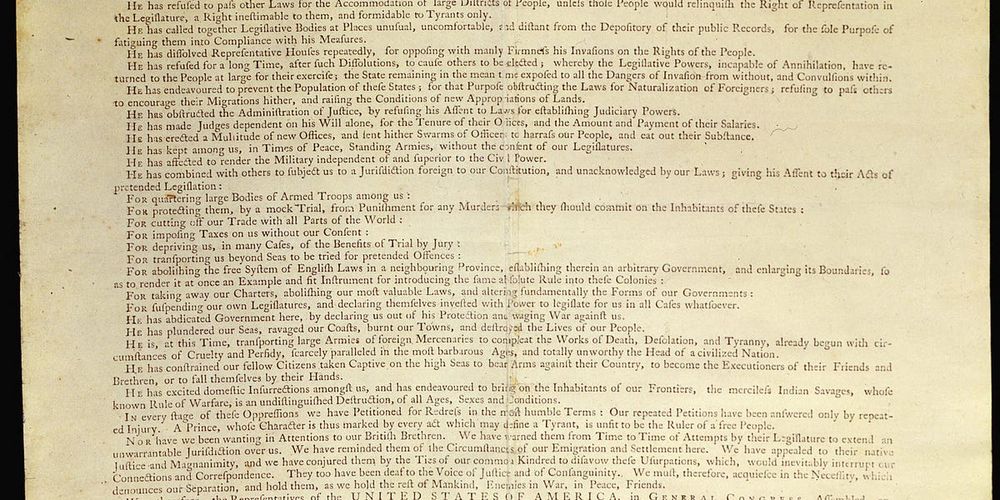 HE has refuſed to paſs other Laws for the Accommodation of large Diſtricts of People, unleſs thoſe People would relinquiſh the Right of Repreſentation in
the Legiſlature, a Right ineſtimable to them, and formidable to Tyrants only.
HE has called together Legiſlative Bodies at Places unuſual, uncomfortable, and diſtant from the Depoſitory of their public Records, for the ſole Purpoſe of
fatiguing them into Compliance with his Meaſures.
HE has diſſolved Repreſentative Houſes repeatedly, for oppoſing with manly Firmneſs his Invaſions on the Rights of the People.
HE has refuſed for a long Time, after ſuch Diſſolutions, to cauſe others to be elected; whereby the Legiſlative Powers, incapable of Annihilation, have re-
turned to the People at large for their exerciſe; the State remaining in the mean time expoſed to all the Dangers of Invaſion from without, and Convulſions within.
HE has endeavoured to prevent the Population of theſe States; for that Purpoſe obſtructing the Laws for Naturalization of Foreigners; refuſing to paſs others
to encourage their Migrations hither, and raiſing the Conditions of new Appropriations of Lands.
HE has obſtructed the Adminiſtration of Juſtice, by refuſing his Aſſent to Laws for eſtabliſhing Judiciary Powers.
HE has made Judges dependent on his Will alone, for the Tenure of their Offices, and the Amount and Payment of their Salaries.
HE has erected a Multitude of new Offices, and ſent hither Swarms of Officers to harraſs our People, and eat out their Subſtance.
HE has kept among us, in Times of Peace, Standing Armies, without the conſent of our Legiſlatures.
HE has affected to render the Military independent of and ſuperior to the Civil Power.
HE has combined with others to ſubject us to a Juriſdiction foreign to our Conſtitution, and unacknowledged by our Laws; giving his Aſſent to their Acts of
pretended Legiſlation:
FOR quartering large Bodies of Armed Troops among us:
FOR protecting them, by a mock Trial, from Puniſhment for any Murders which they ſhould commit on the Inhabitants of theſe States:
FOR cutting off our Trade with all Parts of the World:
FOR impoſing Taxes on us without our Conſent:
FOR depriving us, in many Caſes, of the Benefits of Trial by Jury:
FOR tranſporting us beyond Seas to be tried for pretended Offences:
FOR aboliſhing the free Syſtem of Engliſh Laws in a neighbouring Province, eſtabliſhing therein an arbitrary Government, and enlarging its Boundaries, ſo
as to render it at once an Example and fit Inſtrument for introducing the ſame abſolute Rule into theſe Colonies:
FOR taking away our Charters, aboliſhing our moſt valuable Laws, and altering fundamentally the Forms of our Governments:
FOR ſuſpending our own Legiſlatures, and declaring themſelves inveſted with Power to legiſlate for us in all Caſes whatſoever.
HE has abdicated Government here, by declaring us out of his Protection and waging War againſt us.
HE has plundered our Seas, ravaged our Coaſts, burnt our Towns, and deſtroyed the Lives of our People.
HE is, at this Time, tranſporting large Armies of foreign Mercenaries to compleat the Works of Death, Deſolation, and Tyranny, already begun with cir-
cumſtances of Cruelty and Perfidy, ſcarcely paralleled in the moſt barbarous Ages, and totally unworthy the Head of a civilized Nation.
HE has conſtrained our fellow Citizens taken Captive on the high Seas to bear Arms againſt their Country, to become the Executioners of their Friends and
Brethren, or to fall themſelves by their Hands.
HE has excited domeſtic Inſurrections amongſt us, and has endeavoured to bring on the Inhabitants of our Frontiers, the mercileſs Indian Savages, whoſe
known Rule of Warfare, is an undiſtinguiſhed Deſtruction, of all Ages, Sexes and Conditions.
IN every ſtage of theſe Oppreſſions we have Petitioned for Redreſs in the moſt humble Terms: Our repeated Petitions have been anſwered only by repeat-
ed Injury. A Prince, whoſe Character is thus marked by every act which may define a Tyrant, is unfit to be the Ruler of a free People.
NOR have we been wanting in Attentions to our Britiſh Brethren. We have warned them from Time to Time of Attempts by their Legiſlature to extend an
unwarrantable Juriſdiction over us. We have reminded them of the Circumſtances of our Emigration and Settlement here. We have appealed to their native
Juſtice and Magnanimity, and we have conjured them by the Ties of our common Kindred to diſavow theſe Uſurpations, which, would inevitably interrupt our
Connections and Correſpondence. They too have been deaf to the Voice of Juſtice and of Conſanguinity. We muſt, therefore, acquieſce in the Neceſſity, which
denounces our Separation, and hold them, as we hold the reſt of Mankind, Enemies in War, in Peace, Friends.
the Repreſentatives of the UNITED STATES OF AMERICA, in GENERAL CONGRESS,